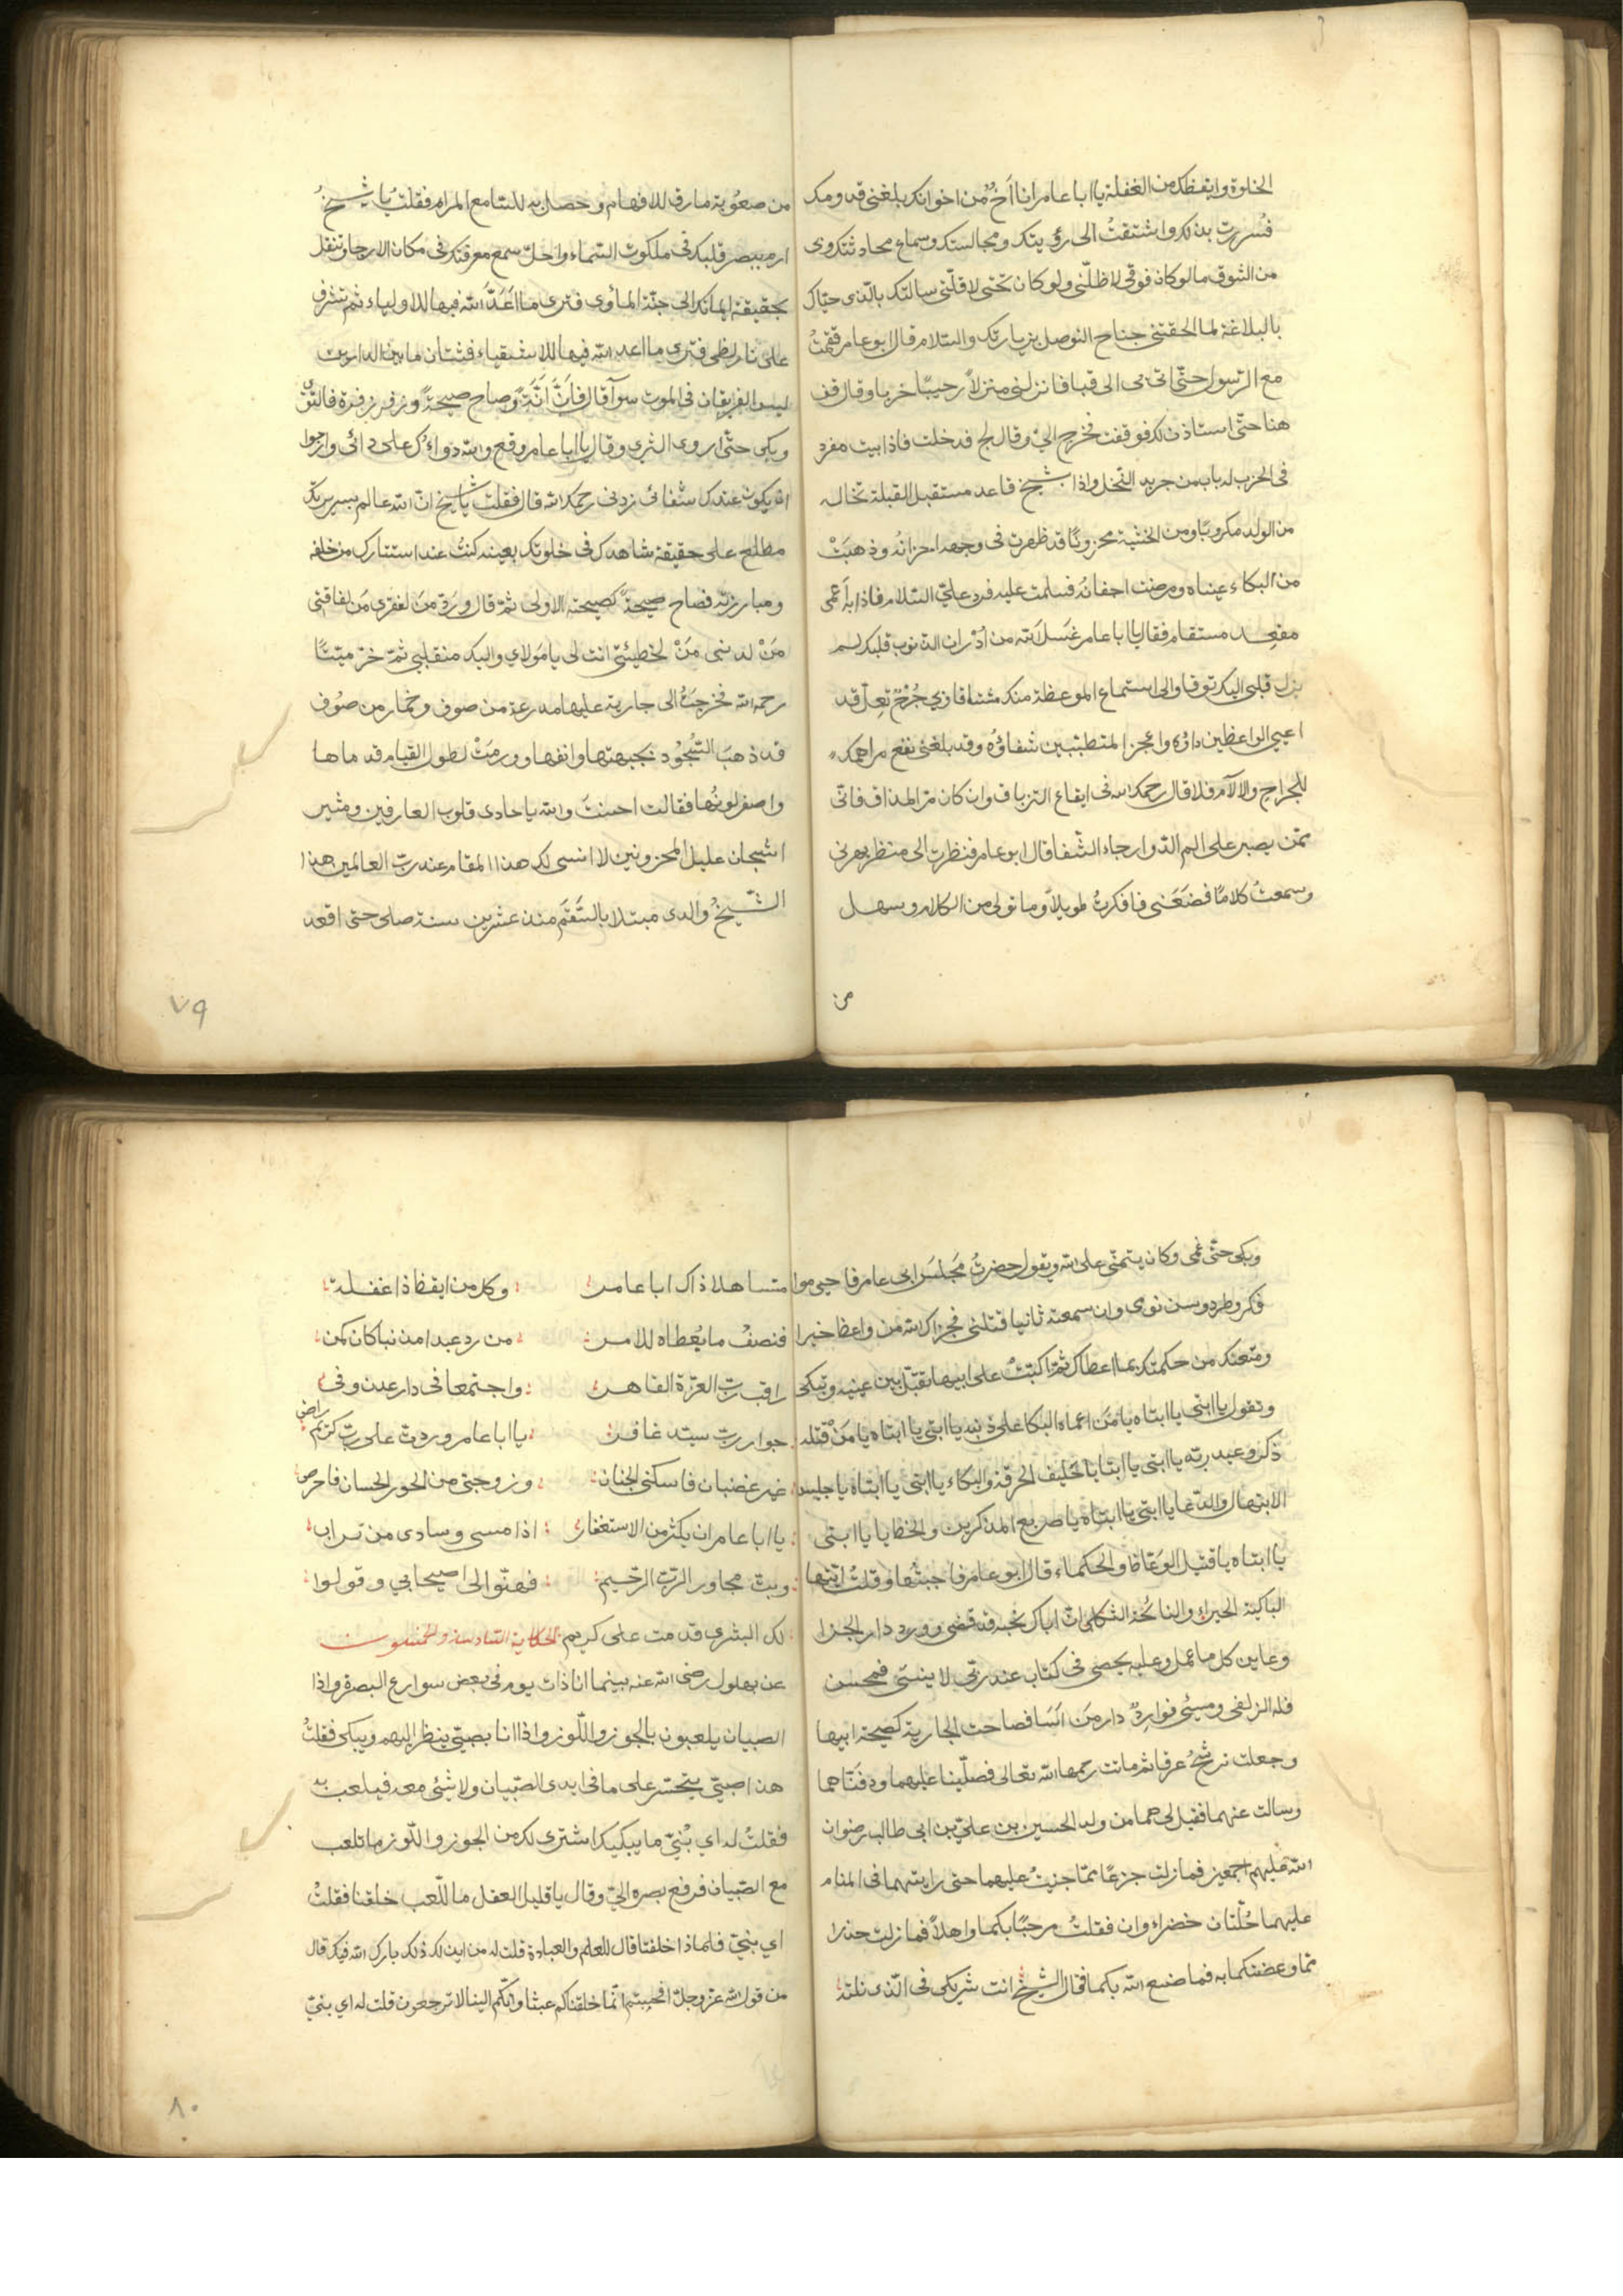 الخلوة وايقظك من الغفلة يا ابا عامر انا اخٌ من اخوانك بلغنى قدومك
فسُررت بذلك واشتقتُ الى رؤيتك ومجالستك وسماع محادثتك وبى
من الشوق ما لو كان فوقى لاظلّنى ولو كان تحتى لاقلّنى سالتك بالّذى حبّاك
بالبلاغة لما الحقتنى جناح التوصل بزيارتك والسّلام قال ابو عامر فقمتُ
مع الرّسول حتّى اتى بى الى قبا فانزلنى منزلاً رحيبًا خربا وقال قف
هنا حتّى استاذن لك فوقفت فخرج الىّ وقال لج فدخلت فاذا بيت مفرد
فى الخرب له باب من جريد النّخل واذا شيخ قاعد مستقبل القبلة تخاله
من الوله مكروبًا ومن الخشية محزونًا قد ظهرت فى وجهه احزانهُ وذهبَتْ
من البكاء عيناه ومرضت اجفانه فسلمت عليه فردّ علىّ السّلام فاذا به اَعمى
مقعد مستقام فقال يا ابا عامر غسَل الله من اَدْران الذّنوب قلبك لم
يزل قلبى اليك توقا والى استماع الموعظة منك مشتاقا وبى جُرْحٌ نغِلٌ قد
اعيى الواعظين داؤه واعجز المتطبّبين شفاؤُه وقد بلغنى نفع مراهمك
للجراح والالآم فلا قال رحمك الله فى ايقاع الترياق وان كان مرّ المذاق فانّى
ممّن يصبر على الم الدّوا رجاء الشّفا قال ابو عامر فنظرت الى منظر بهرنى
وسمعتُ كلامًا فضَعَنى فافكرتُ طويلاً وما تولى من الكلام وسهل
من
من صعُوبة ما رق للافهام وحصل به للسّامع المرام فقلت يا شيخُ
ارم ببصر قلبك فى ملكوت السّماء واجلّ سمع معرفتك فى مكان الارجا وتنقل
بحقيقة ايمانك الى جنّة المأوى فترى ما اَعَدَّ الله فيها للاولياء ثم تشرف
على نار لظى فترى ما اعد الله فيها للاشقياء فشتّان ما بين الدارين
ليس الفريقان فى الموت سوآ قال فانَّ اَنَّةً وصاح صيحةً وزفر زفرة فالتوى
وبكى حتّى اروى الثرى وقال يا ابا عامر وقع والله دواؤك على دائى وارجوا
ان يكون عندك شفائى زدنى رحمك الله قال فقلت يا شيخ انّ الله عالم بسريرتك
مطلع على حقيقة شاهدك فى خلوتك بعينه كنتُ عند استتارك من خلقه
ومبارزته فصاح صيحةً كصيحته الاولى ثمّ قال ورَدَّ مَن لفقرى مَن لفاقتى
مَنْ لذنبى مَنْ لخطيئتى انت لى يا مَولاى واليك منقلبى ثمّ خرّ ميتًا
رحمه الله فخرجَتْ الى جارية عليها مدرعة من صوف وخمار من صُوف
قد ذهبَ السُّجُود بجبهتها وانفها وورمَتْ لطول القيام قدماها
واصفر لونُها فقالت احسنتَ والله يا حادى قلوب العارفين ومثير
اشجان عليل المحزونين لا انسى لك هذا المقام عند ربّ العالمين هذا
الشّيخُ والدى مبتلا بالسّقم منذ عشرين سنة صلى حتى اقعد
٧٩
وبكى حتّى عمى وكان يتمنّى على الله ويقول حضرتُ مجلسَ ابى عامر فاحيى موا
فكر وطرد وسن نومى وان سمعته ثانيا قتلنى فجزاك الله من واعظ خيرا
ومتعتك من حكمتك بما اعطاك ثمّ اكبّتْ على ابيها تقبّل بين عينيه وتبكى
وتقول يا ابتى يا ابتاه يا مَن اعماه البكا على ذنبه يا ابتى يا ابتاه يا مَنْ قتله
ذكر وعيد ربّه يا ابتى يا ابتا يا حليف الحرقة والبكاء يا ابتى يا ابتاه يا جليس
الابتهال والدّعا يا ابتى يا ابتاه يا صريع المذكرين والخطايا يا ابتى
يا ابتاه يا قتيل الوعّاظ والحكماء قال ابو عامر فاجبتُها وقلتُ ايتها
الباكية الحيراء والنائحة الثّكلى انّ اباك نحبه قد قضى وورد دار الجزا
وعاين كل ما عمل وعليه يحصى فى كتاب عند ربّى لا ينسى فمحسن
فله الزلفى ومسيئ فوارِدٌ دار مَن اَسَا فصاحت الجارية كصيحة ابيها
وجعلت ترشحُ عرقا ثم ماتت رحمها الله تعالى فصلّينا عليهما ودفنّاهما
وسالت عنهما فقيل لى هما من ولد الحسين بن علىّ بن ابى طالب رضوان
الله عليهم اجمعين فما زلت جزعًا ممّا جنيتُ عليهما حتى رايتهما فى المنام
عليهما حُلّتان خضراوان فقلتُ مرحبًا بكما واهلاً فما زلت حذرا
مما وعضتكما به فما صنع الله بكما فقال الشّيخُ انت شريكى فى الّذى نلته
متساهلا ذاك ابا عامر وكل من ايقظ ذا غفلة
فنصفُ ما يُعطاه للامر من رد عبدا مذنبا كان كمن
راقب ربّ العزّة القاهر واجتمعا فى دار عدن وفى
جوار ربّ سيّد غافر يا ابا عامر وردت على ربّ كريم راض
غير غضبان فاسكنى الجنان وزوجنى من الحور الحسان فاحرص
يا ابا عامر ان يكثر من الاستغفار اذا مسى وسادى من تراب
وبتّ مجاور الربّ الرّحيم فهنّوا لى اصيحابى وقولوا
لك البشرى قدمت على كريم الحكاية السّادسة والخمسون
عن بهلول رضى الله عنه بينما انا ذات يوم فى بعض سوارع البصرة واذا
الصبيان يلعبون بالجوز واللّوز واذا انا بصبىّ ينظر اليهم ويبكى فقلتُ
هذا صبىّ يتحسّر على ما فى ايدى الصّبيان ولا شئى معه فيلعب به
فقلتُ له اى بُنىّ ما يبكيك اشترى لك من الجوز واللّوز ما تلعب
مع الصّبيان فرفع بصره الىّ وقال يا قليل العقل ما للّعب خلقنا فقلتُ
اى بنىّ فلماذا خلقنا قال للعلم والعبادة قلت له من اين لك ذلك بارك الله فيك قال
من قول الله عزّ وجلّ افحسبتم انّما خلقناكم عبثا وانّكم الينا لا ترجعون قلت له اى بنىّ
٨٠